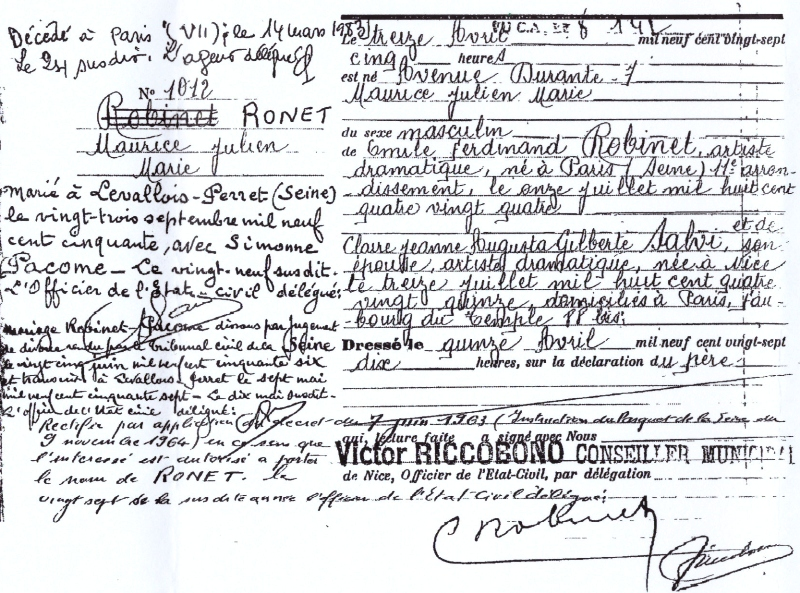 Décédé à Paris (VII) le 14 mars 1983
Le 24 susdit. L'agent délégué
N° 1012
Robinet RONET
Maurice Julien
Marie
Marié à Levallois-Perret (Seine)
le vingt-trois septembre mil neuf
cent cinquante, avec Simonne
Pacome - Le vingt-neuf susdit.
L'Officier de l'Etat-civil délégué:
mariage Robinet-Pacome dissous par jugement
de divorce rendu par le tribunal civil de la Seine
le vingt cinq juin mil neuf cent cinquante six
et transcrit à Levallois-Perret le sept mai
mil neuf cent cinquante sept - Le dix mai susdit -
L'officier de l'état civil délégué:
Rectifié par application du décret du 7 juin 1963 (Instruction du Parquet de la Seine du
9 novembre 1964) en ce sens que
l'intéressé est autorisé à porter
le nom de RONET. le
vingt sept de la susdite année l'Officier de l'Etat Civil délégué:
Le treize Avril mil neuf cent vingt-sept
cinq heures
est né Avenue Durante 7
Maurice Julien Marie
du sexe masculin
de Emile Ferdinand Robinet, artiste
dramatique, né à Paris (Seine) 11e arron-
dissement, le onze juillet mil huit cent
quatre vingt quatre
et de
Claire Jeanne Augusta Gilberte Salvi, son
épouse, artiste dramatique, née à Nice
le treize juillet mil huit cent quatre
vingt quinze, domiciliés à Paris, fau-
bourg du Temple 88 bis;
Dressé le quinze Avril mil neuf cent vingt-sept
dix heures, sur la déclaration du père
qui, lecture faite a signé avec Nous
Victor RICCOBONO CONSEILLER MUNICIPAL
de Nice, Officier de l'Etat-Civil, par délégation
E Robinet